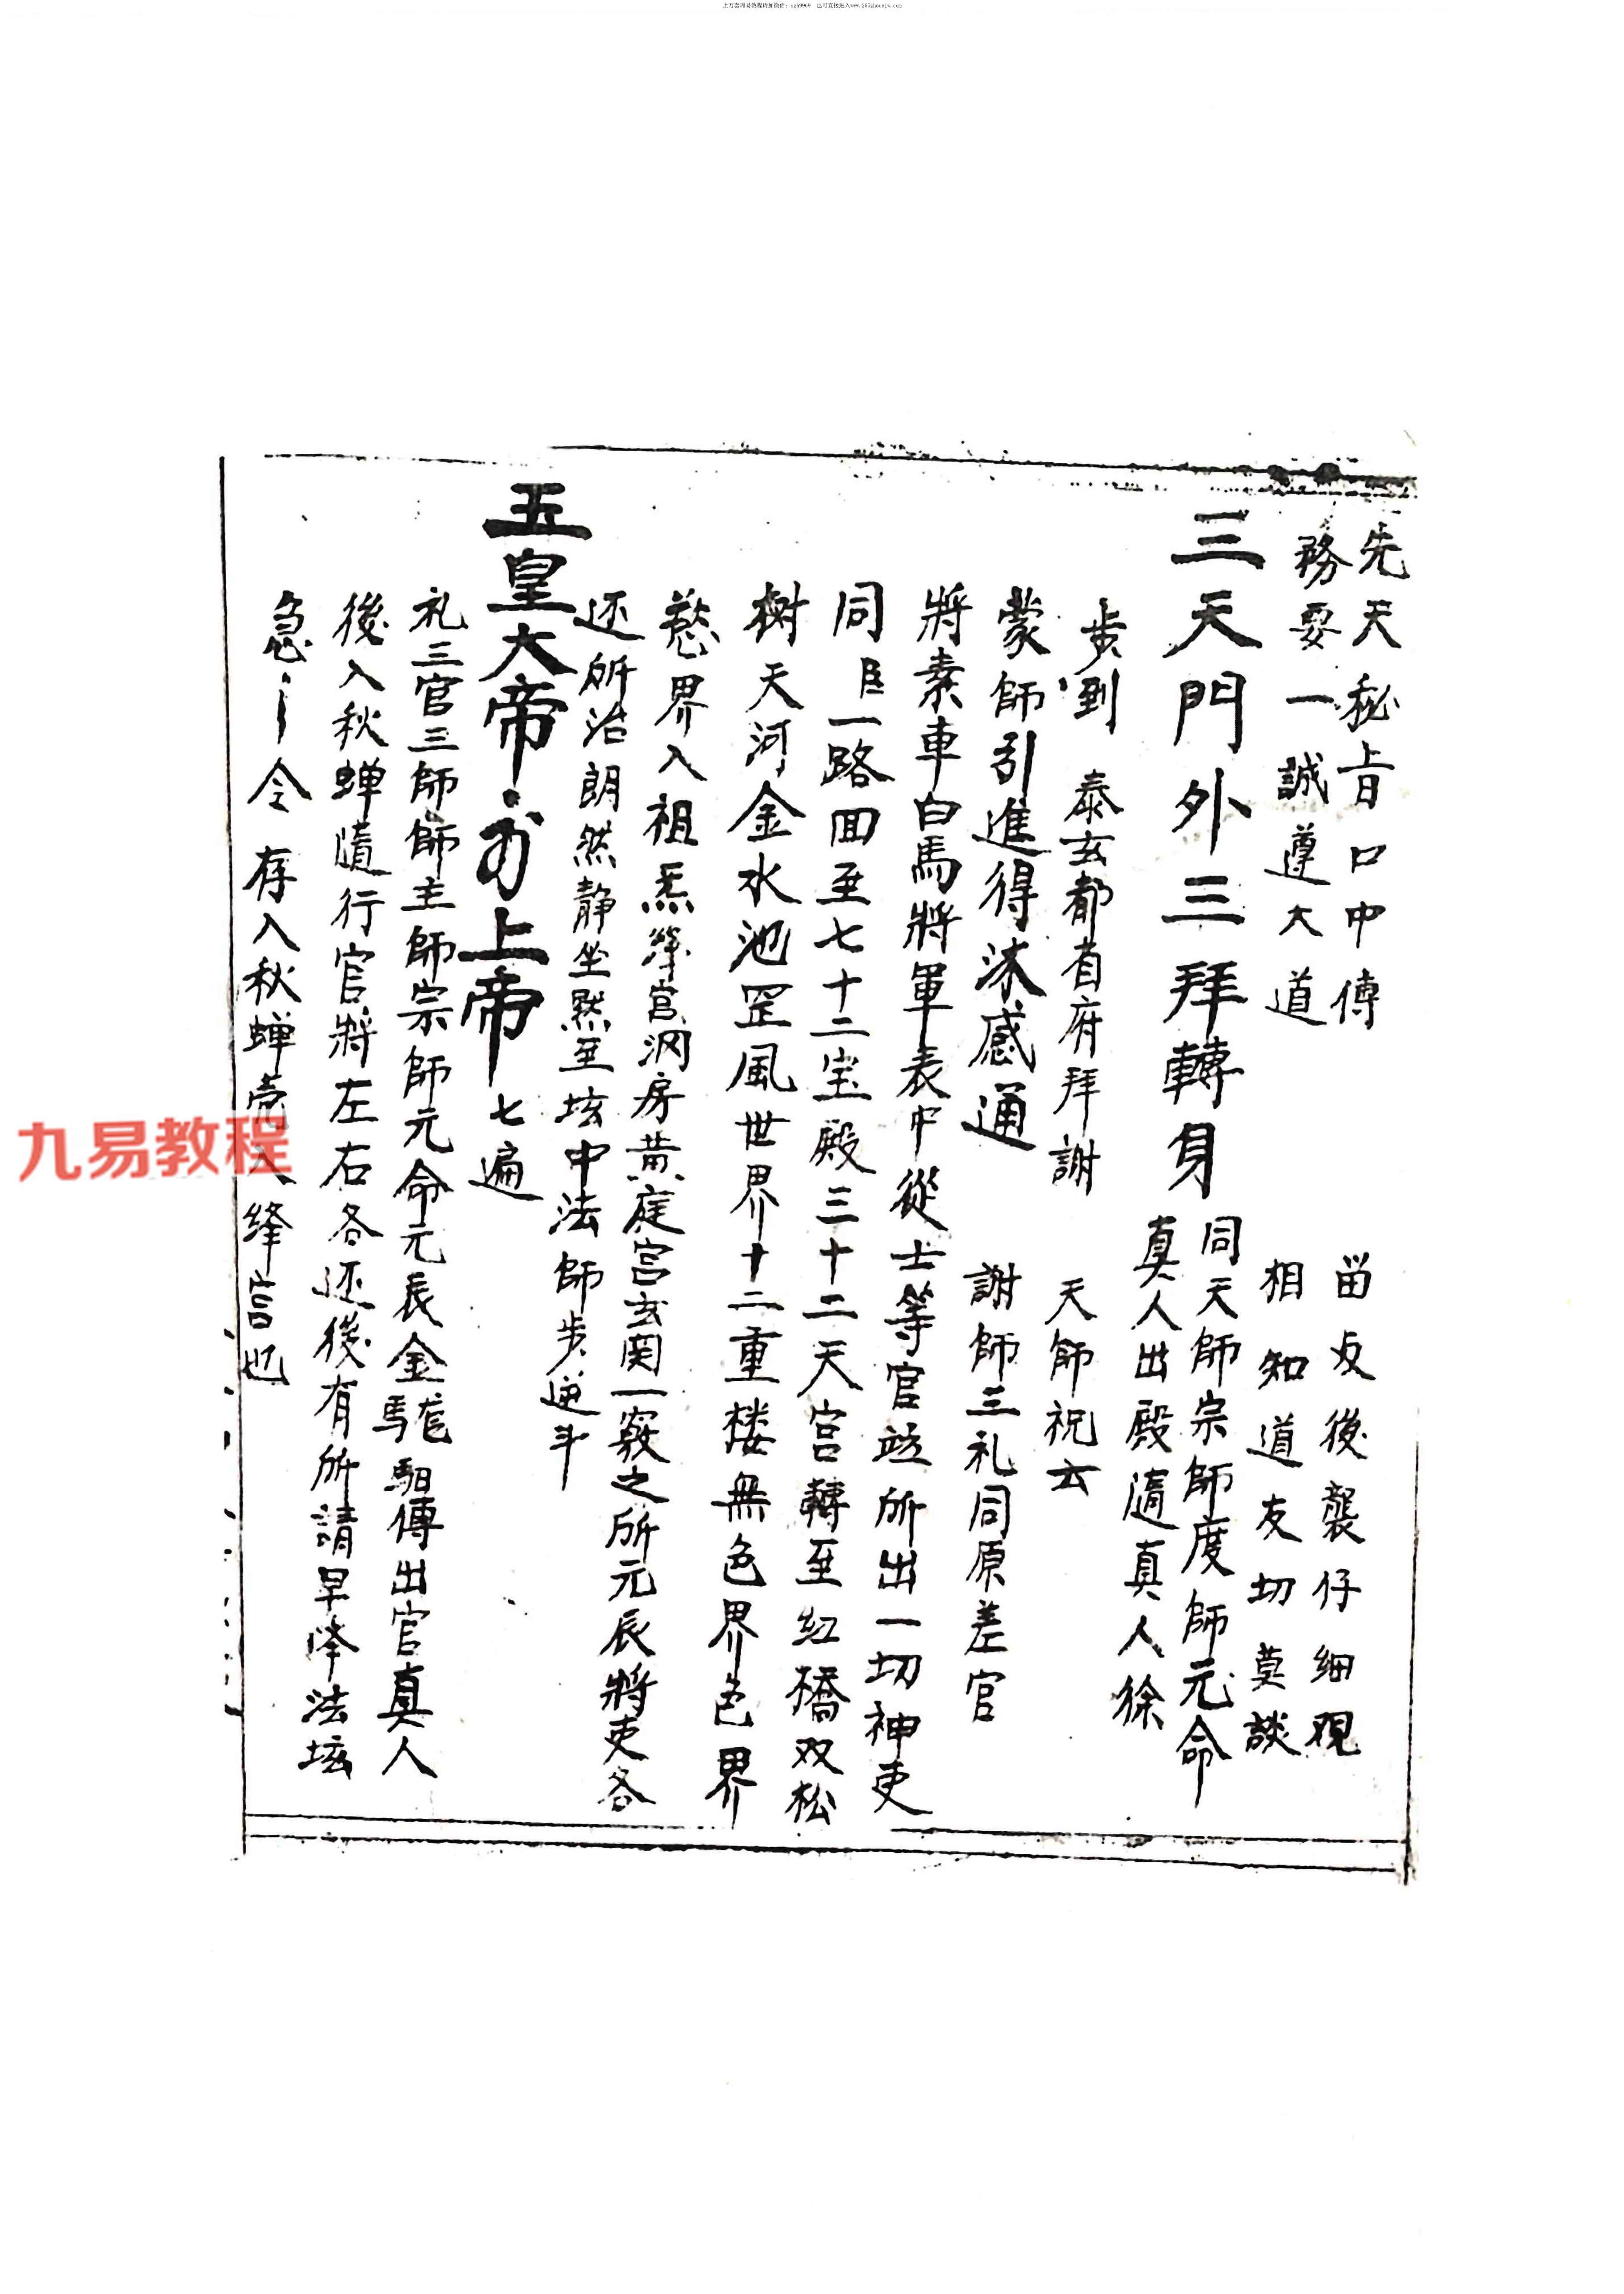 上万套周易教程请加微信：szh9969 也可直接进入www.265zhouyiw.com
先天秘旨口中傳 留与後襲仔細观
務要一誠遵大道 相知道友切莫談
三天門外三拜轉身
同天師宗師度師元命
真人出殿隨真人徐
步到 泰玄都省府拜謝 天師祝云
蒙師引進得沐感通 謝師三礼同原差官
將素車白馬將軍表中從士等官並所出一切神吏
同臣一路回至七十二宝殿三十二天宫轉至紅橋双松
樹天河金水池罡風世界十二重楼無色界色界
慾界入祖炁絳宫洞房黄庭宫玄関一竅之所元辰將吏各
还所治朗然静坐黙至坛中法師步逆斗
玉皇大帝 上帝七遍
礼三官三師師主師宗師元命元辰金龍馹傳出官真人
後入秋蝉隨行官將左右各还後有所請早降法坛
急令 存入秋蝉壳入絳宫也
九易教程